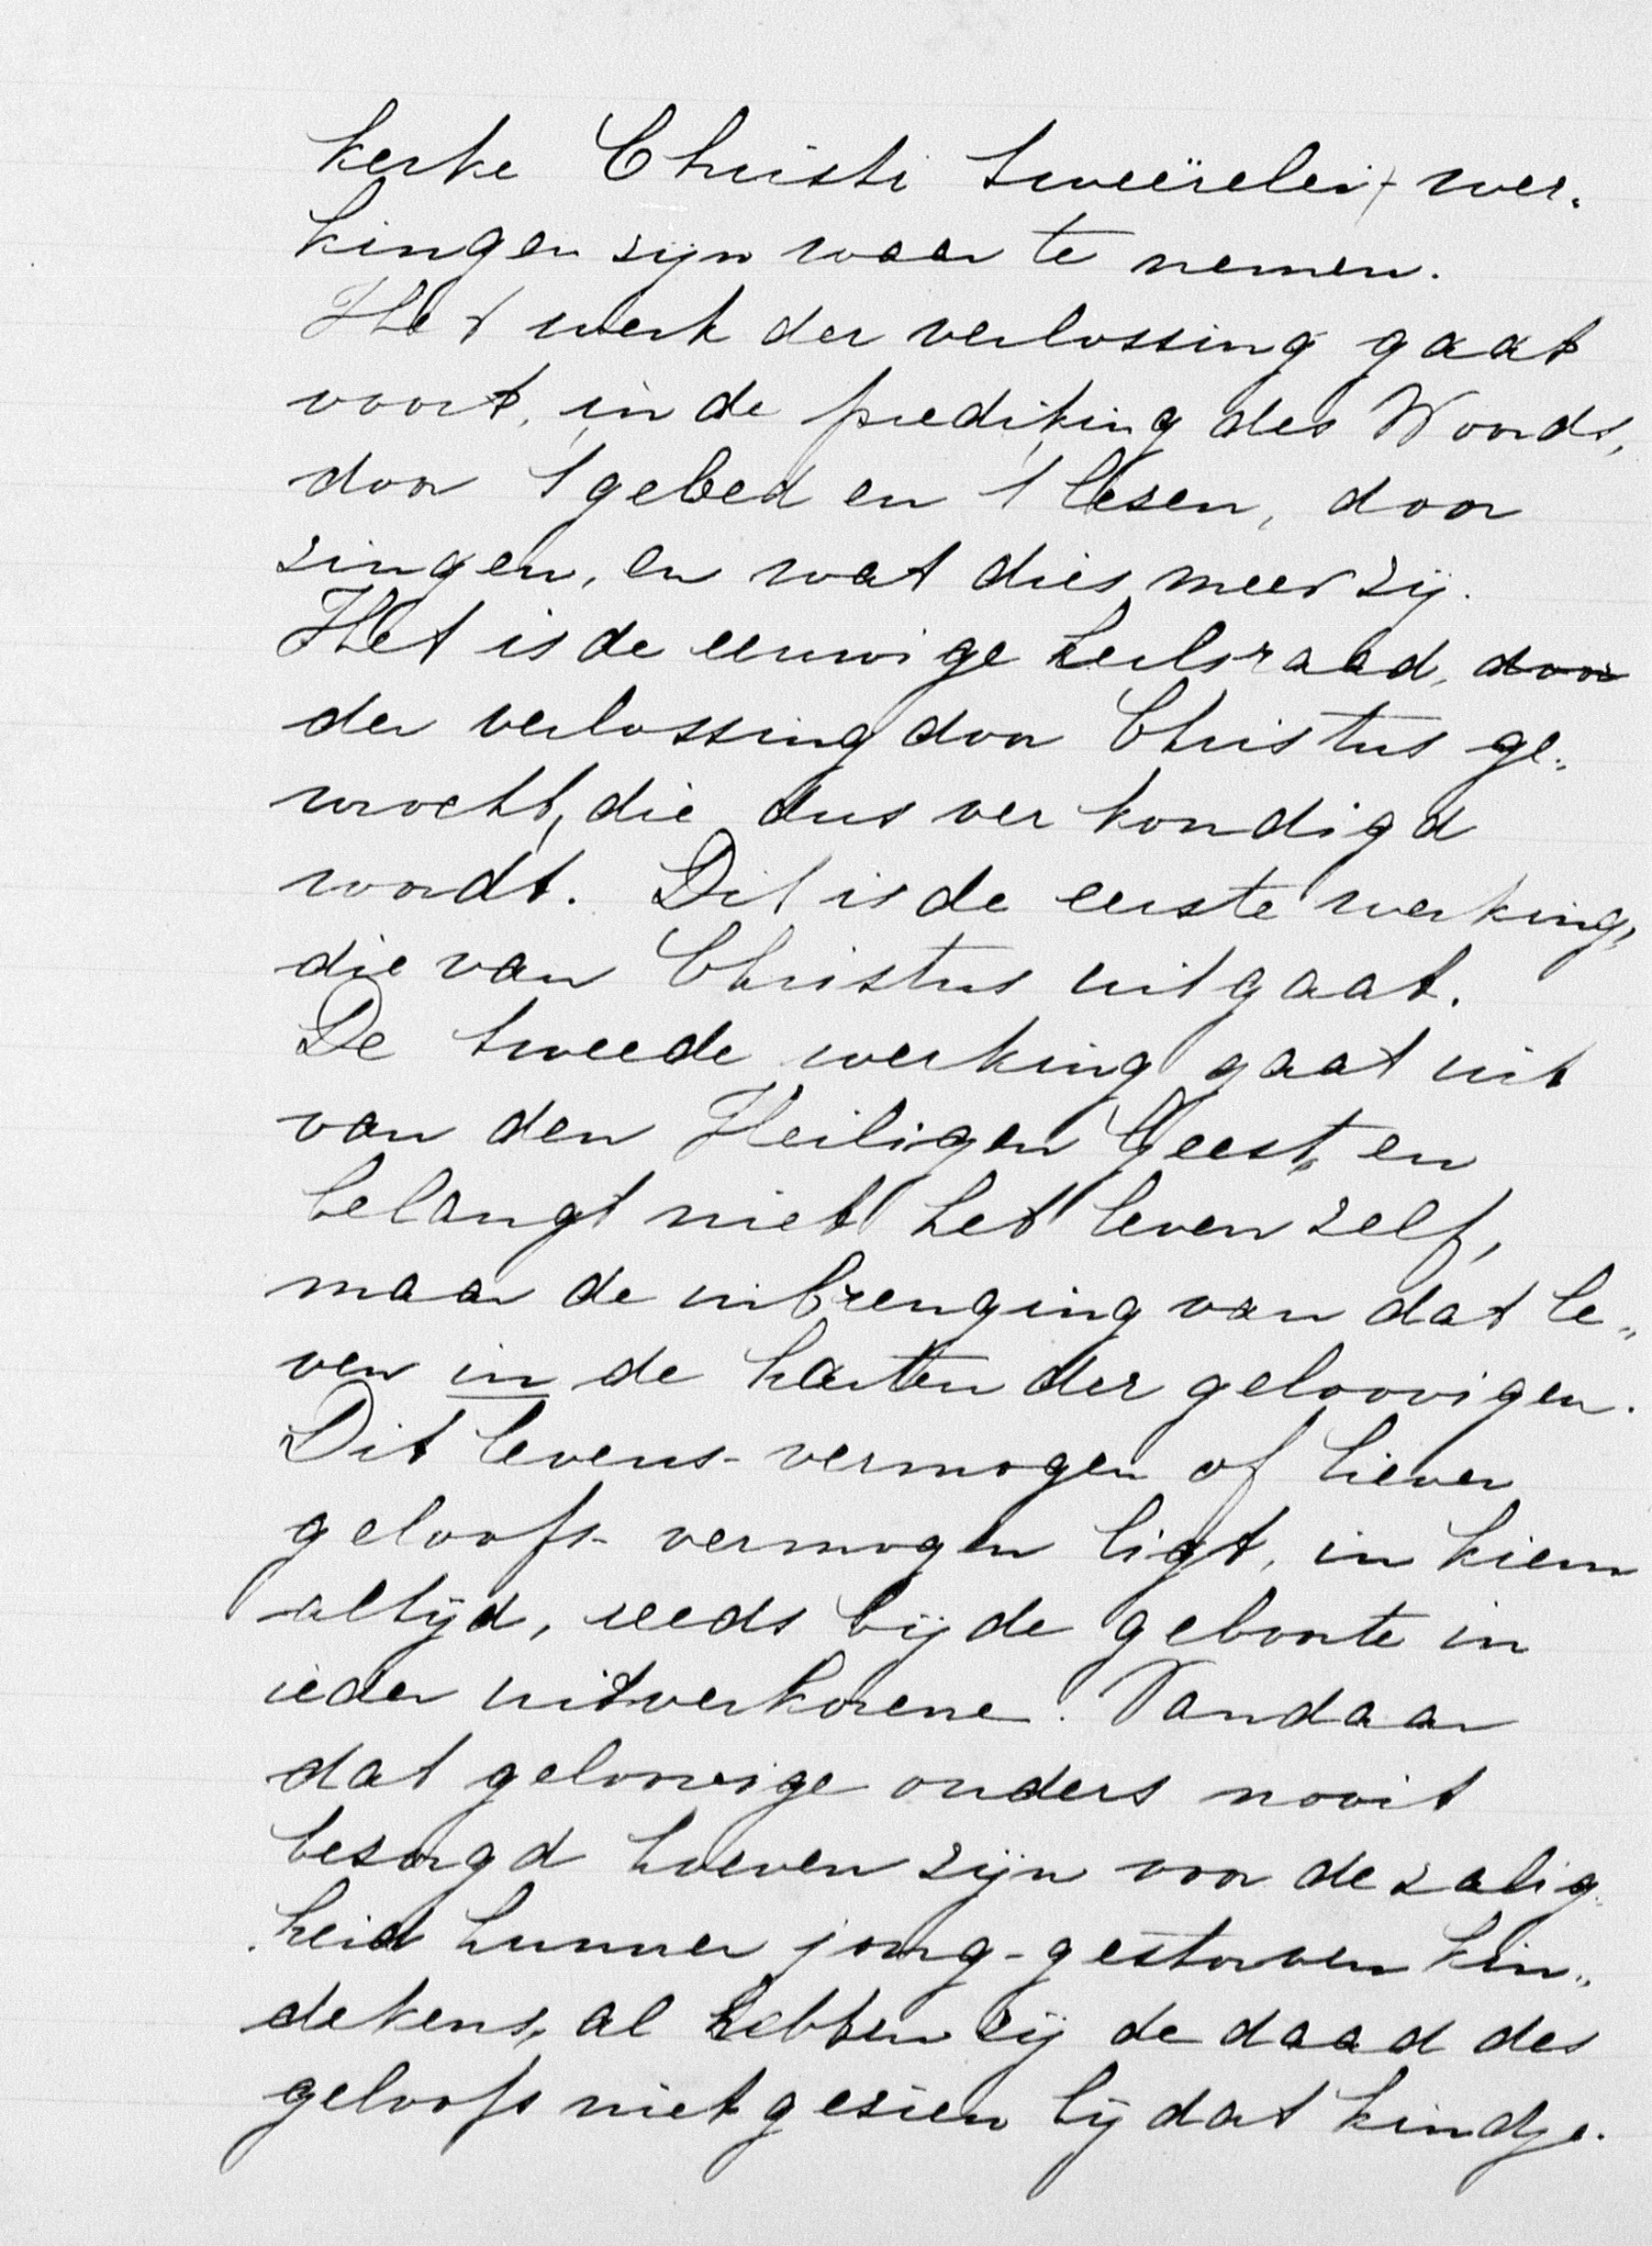 kerke Christi tweeërlei wer„
kingen zijn waar te nemen.
Het werk der verlossing gaat
voort, in de prediking des Woords,
door 't gebed en 't lezen, door
zingen, en wat dies meer zij.
Het is de eeuwige heilsraad, door
der verlossing door Christus ge„
wrocht, die dus verkondigd
wordt. Dit is de eerste werking,
die van Christus uitgaat.
De tweede werking gaat uit
van den Heiligen Geest, en
belangt niet het leven zelf,
maar de inbrenging van dat le„
ven in de harten der geloovigen.
Dit levens-vermogen of liever
geloofs-vermogen ligt, in kiem
altijd, reeds bij de geboorte in
ieder uitverkorene. Vandaar
dat geloovige ouders nooit
bezorgd hoeven zijn voor de zalig„
heid hunner jong-gestorven kin„
dekens, al hebben zij de daad des
geloofs niet gezien bij dat kindje.